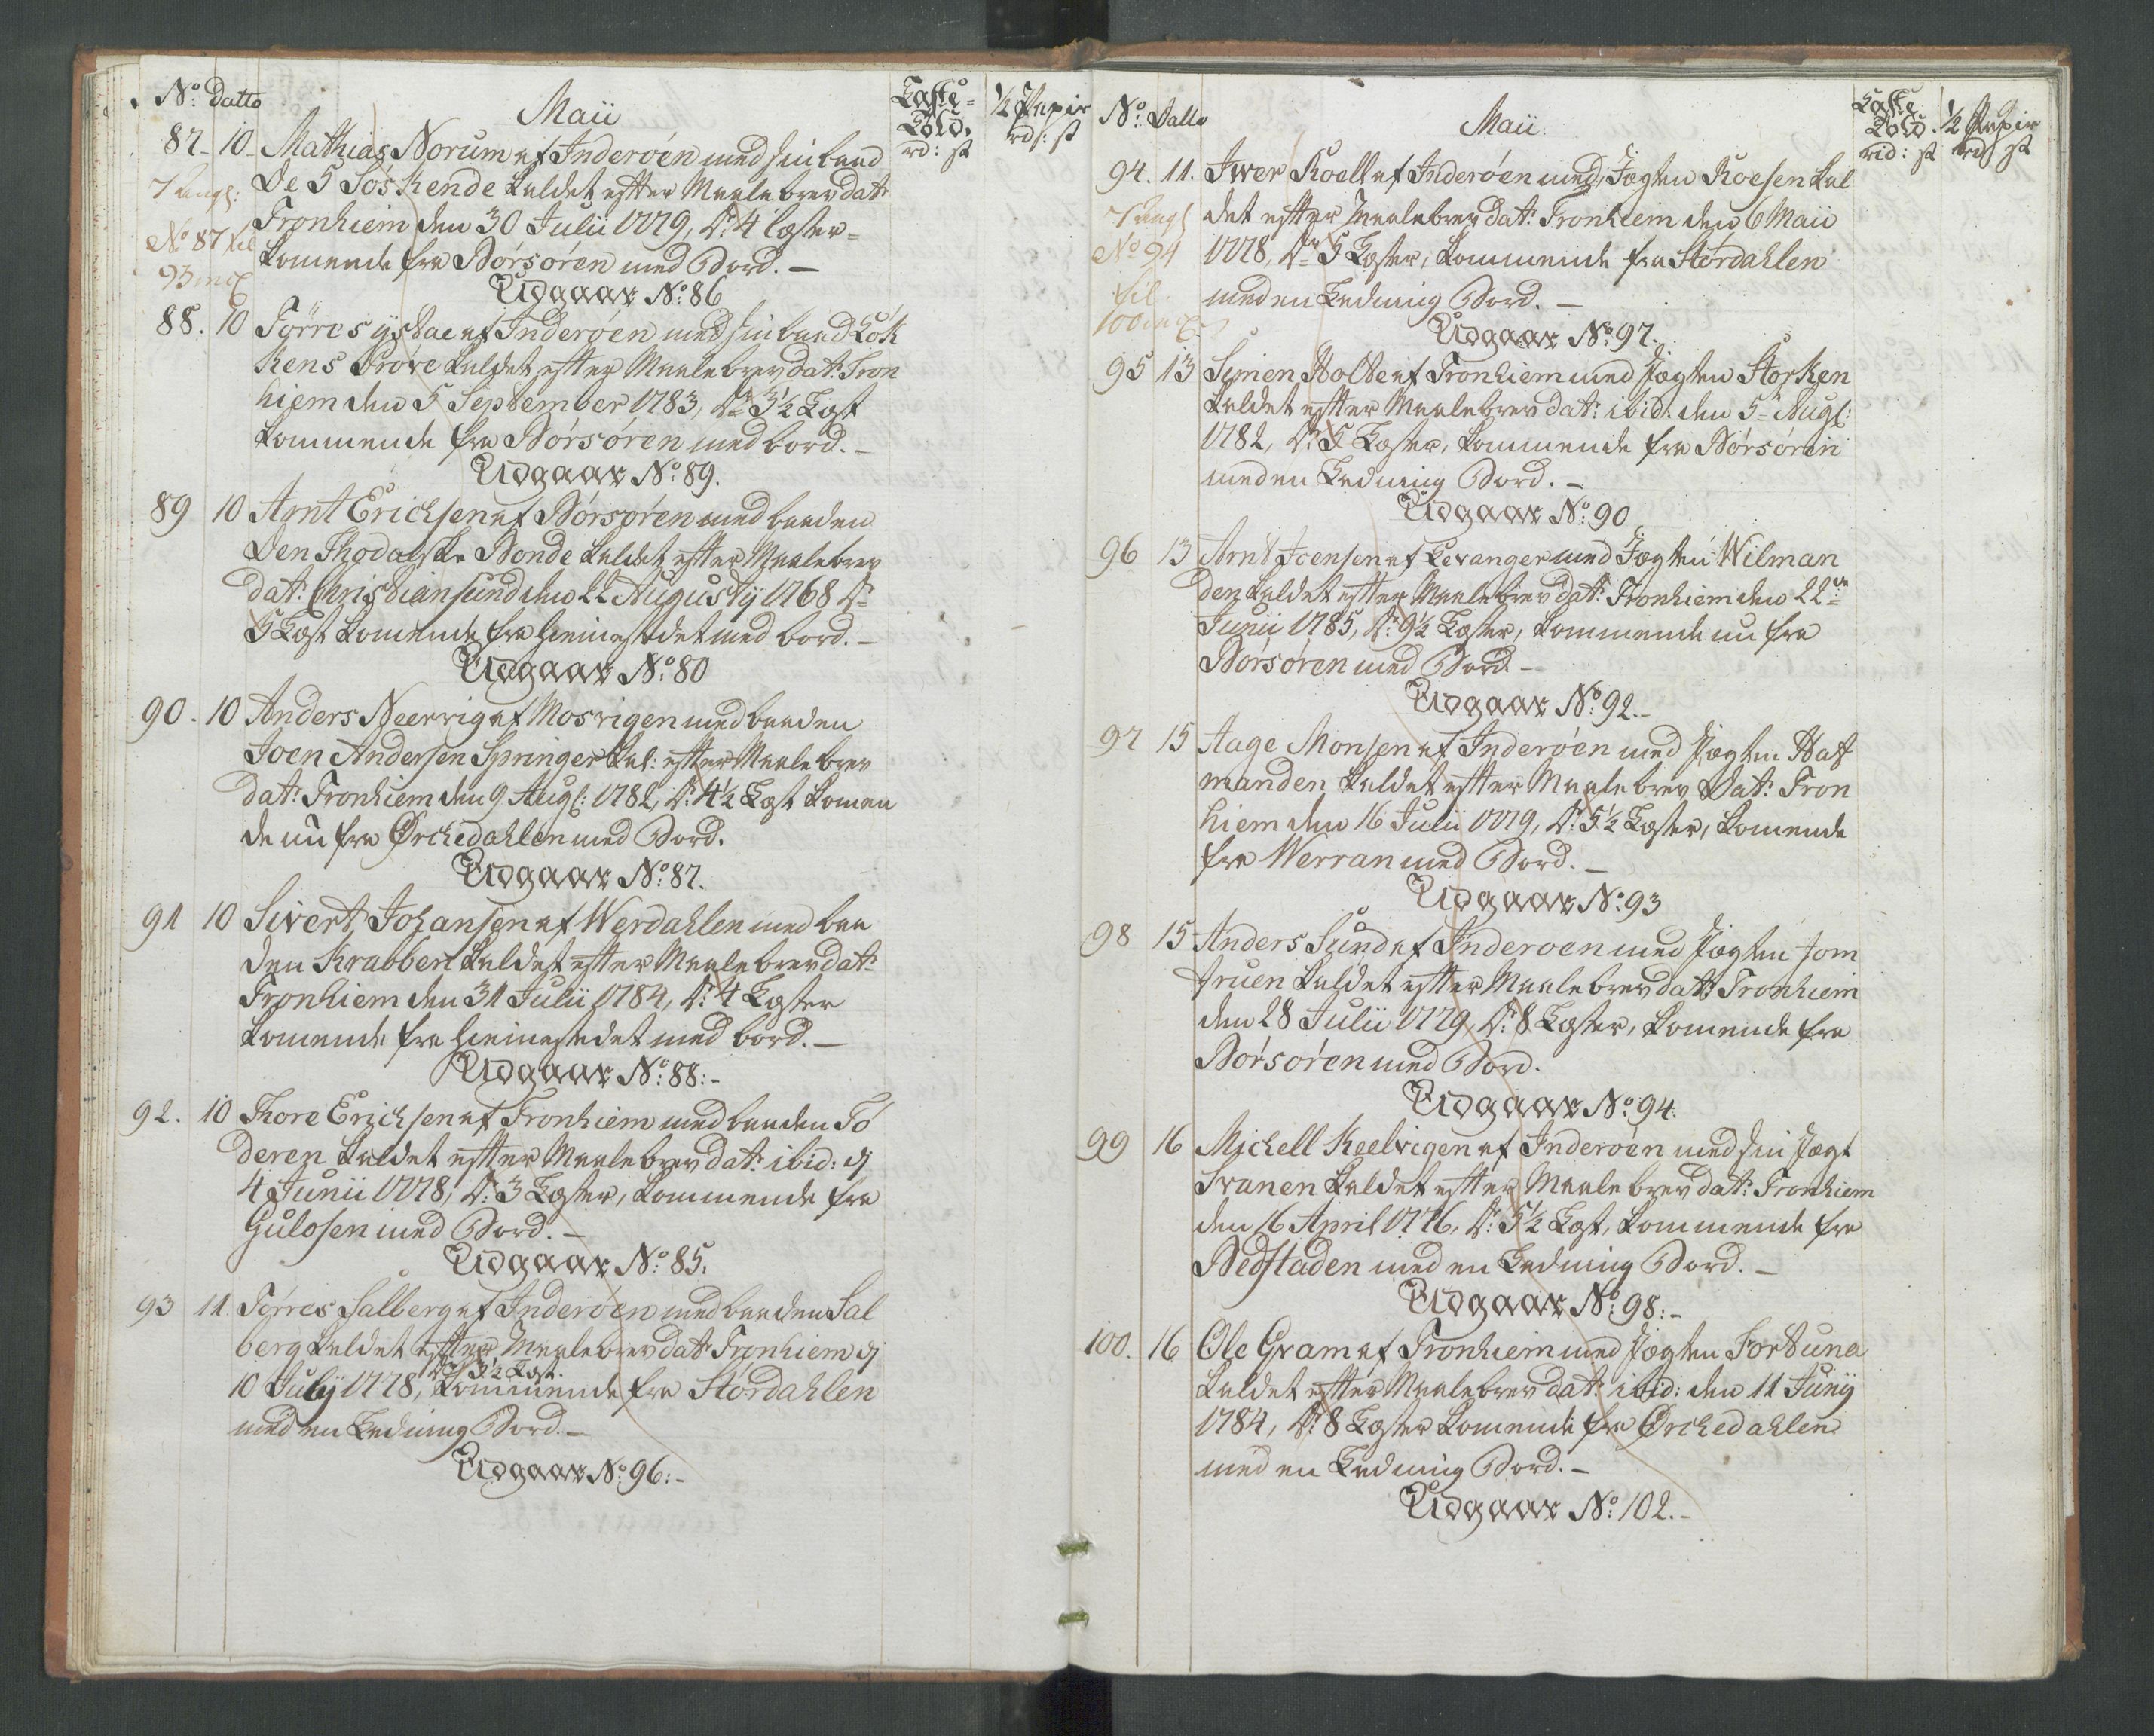 No: Datto
Maii
Læste=
Told.
rd: st
1/2 Papir
rd: st
87. 10. Mathias Norum af Inderøen med sin baad
7 Angl:
De 5 Søskende kaldet efter Maalebrev dat:
Tronhiem den 30 Julii 1779, Dr: 4 læster
No 87 til
komende fra Børsøren med Bord. —
93 incl
Udgaar No: 86
88. 10 Tørres ystae af Inderøen med sin baad Løk
kens Prøve kaldet efter Maalebrev dat: Tron
hiem den 5 September 1783, Dr 3½ Læst
kommende fra Børsøren med bord. —
Udgaar No: 89.
89 10 Arnt Erichsen af Børsøren med baaden
Den Thydalske Bonde kaldet efter Maalebrev
dat: Christiansund den 22 Augustij 1768 Dr
5 Læst komende fra hiemstedet med bord. —
Udgaar No: 80
90. 10 Anders Neervig af Mosvigen med baaden
Joen Andersen Springer kal: efter Maalebrev
dat: Tronhiem den 9 Aug: 1782, Dr: 4½ Læst komen
de nu fra Ørchedahlen med Bord.
Udgaar No: 87.
91 10 Sivert Johansen af Werdahlen med baa
den Krabben kaldet efter Maalebrev dat:
Tronhiem den 31 Julii 1784, Dr: 4 Læster
komende fra hiemstedet med bord. —
Udgaar No: 88:-
92. 10 Thore Erichsen af Tronhiem med baaden To
deren kaldet efter Maalebrev dat: ibid: dj
4 Junii 1778, Dr: 3 Læster, kommende fra
Gulosen med Bord. —
Udgaar No: 85.
93 11. Tørres Salberg af Inderøen med baaden Sal
berg kaldet efter Maalebrev dat: Tronhiem dj
Dr: 3½ Læst.
10 Julij 1778, kommende fra Størdahlen
med en Ladning Bord. —
Udgaar No: 96:-
No: Datto
Maii
Læste
Told.
rd: st
1/2 Papir
rd st
94. 11. Iwer Roell af Inderøen med Jægten Roesen kal
7 Angl
det efter Maalebrev dat: Tronhiem den 6 Maii
No 94
1778, Dr 5 Læster, kommende fra Størdahlen
til
med en Ladning Bord. —
100 incl
Udgaar No: 97.
95 13 Simen Holte af Tronhiem med Jægten Storken
kaldet efter Maalebrev dat: ibid: den 5te Aug:
1782, Dr: 5 Læster, kommende fra Børsøren
med en Ladning Bord. —
Udgaar No: 90
96 13 Arnt Joensen af Levanger med Jægten Wilman
den kaldet efter Maalebrev dat: Tronhiem den 22de
Junii 1785, Dr: 9½ Læster, kommende nu fra
Børsøren med Bord —
Udgaar No: 92.-
97 15 Aage Monsen af Inderøen med Jægten Haf
manden kaldet efter Maalebrev Dat: Tron
hiem den 16 Julii 1779, Dr: 5½ Læster, komende
fra Werran med Bord. —
Udgaar No: 93
98 15 Anders Sund af Inderøen med Jægten Jom
fruen kaldet efter Maalebrev dat: Tronhiem
den 28 Julii 1779, Dr: 8 Læster, komende fra
Børsøren med Bord.
Udgaar No: 94.
99 16 Michell Keelvigen af Inderøen med sin Jægt
Svanen kaldet efter Maalebrev dat: Tronhiem
den 16 April 1776, Dr: 5½ Læst, kommende fra
Bedstaden med en Ladning Bord. —
Udgaar No: 98:-
100. 16 Ole Gram af Tronhiem med Jægten Fortuna
kaldet efter Maalebrev dat: ibid: den 11 Junij
1784, Dr: 8 Læster komende fra Ørchedahlen
med en Ladning Bord. —
Udgaar No: 102.-